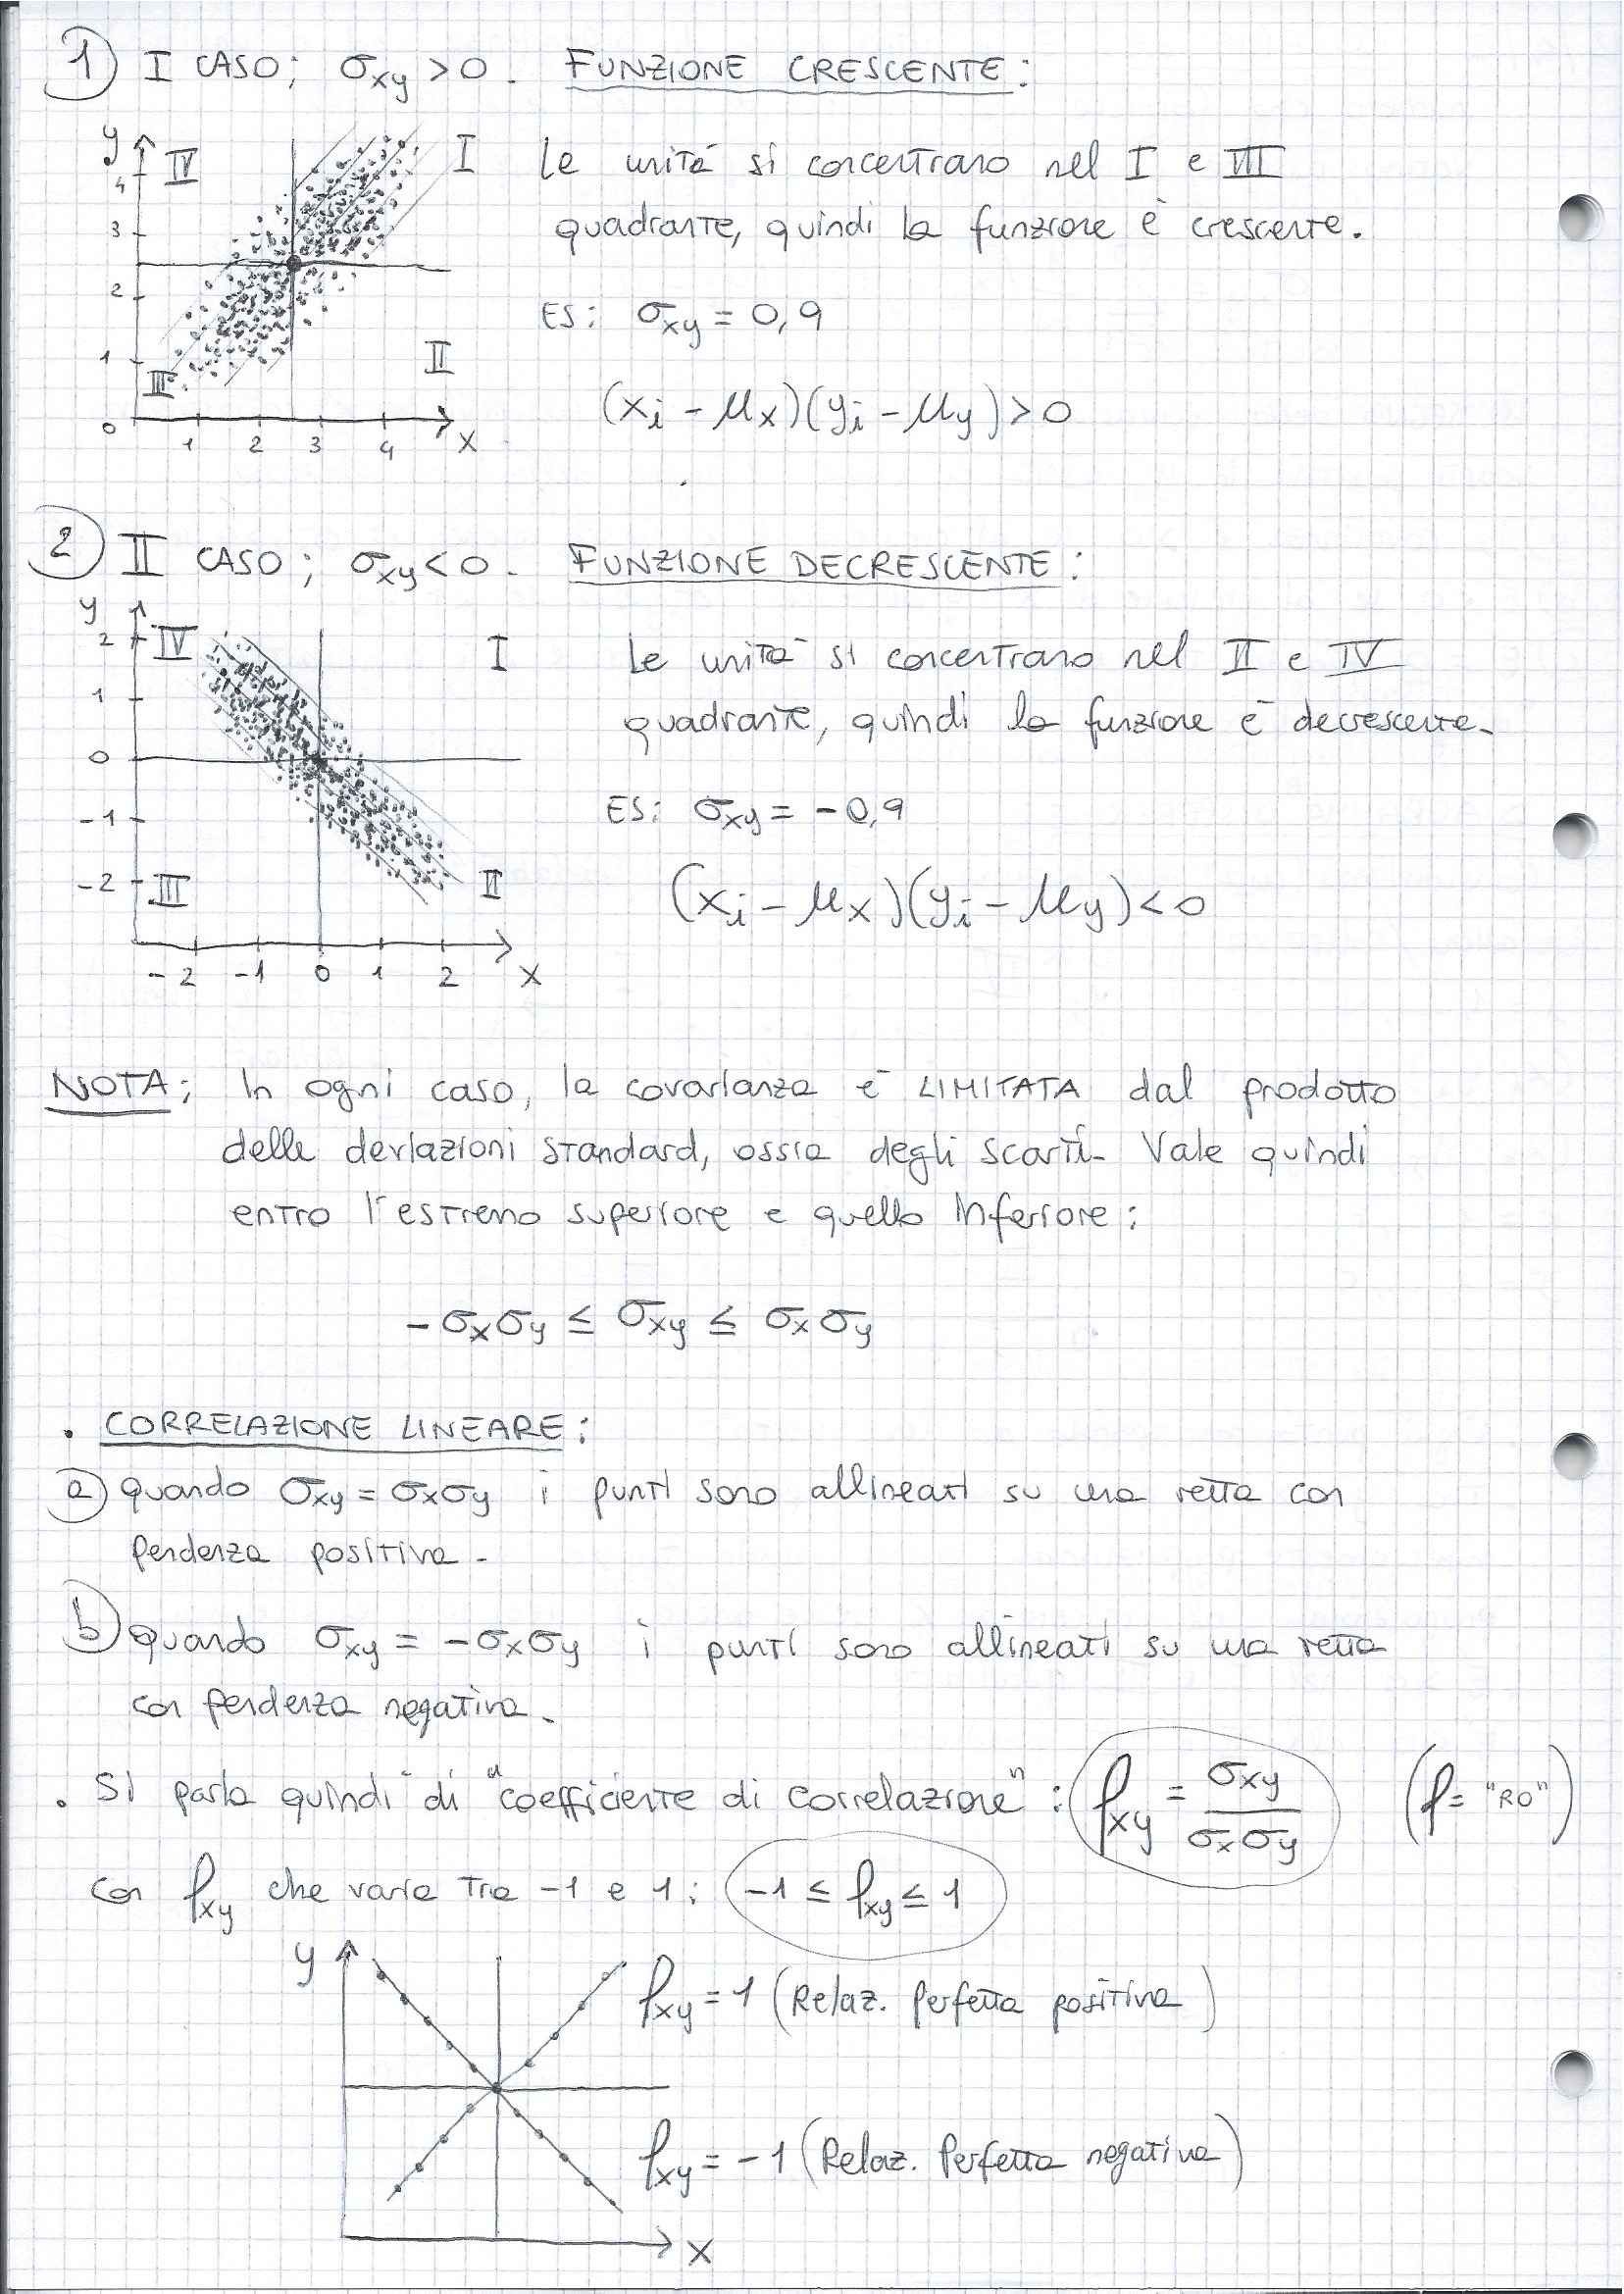 1) I CASO; σxy > 0. FUNZIONE CRESCENTE:
y
IV
I
4
3
2
1
III
II
0 1 2 3 4 x
Le unità si concentrano nel I e III
quadrante, quindi la funzione è crescente.
ES: σxy = 0,9
(xi - μx)(yi - μy) > 0
2) II CASO; σxy < 0. FUNZIONE DECRESCENTE:
y
2
IV
I
1
0
-1
-2
III
II
-2 -1 0 1 2 x
Le unità si concentrano nel II e IV
quadrante, quindi la funzione è decrescente.
ES: σxy = -0,9
(xi - μx)(yi - μy) < 0
NOTA; In ogni caso, la covarianza è LIMITATA dal prodotto
delle deviazioni standard, ossia degli scarti. Vale quindi
entro l'estremo superiore e quello inferiore:
-σxσy ≤ σxy ≤ σxσy
. CORRELAZIONE LINEARE:
a) quando σxy = σxσy i punti sono allineati su una retta con
pendenza positiva.
b) quando σxy = -σxσy i punti sono allineati su una retta
con pendenza negativa.
. Si parla quindi di "coefficiente di correlazione": ρxy = σxy / σxσy (ρ = "RO")
con ρxy che varia tra -1 e 1: -1 ≤ ρxy ≤ 1
y
ρxy = 1 (Relaz. Perfetta positiva)
ρxy = -1 (Relaz. Perfetta negativa)
x